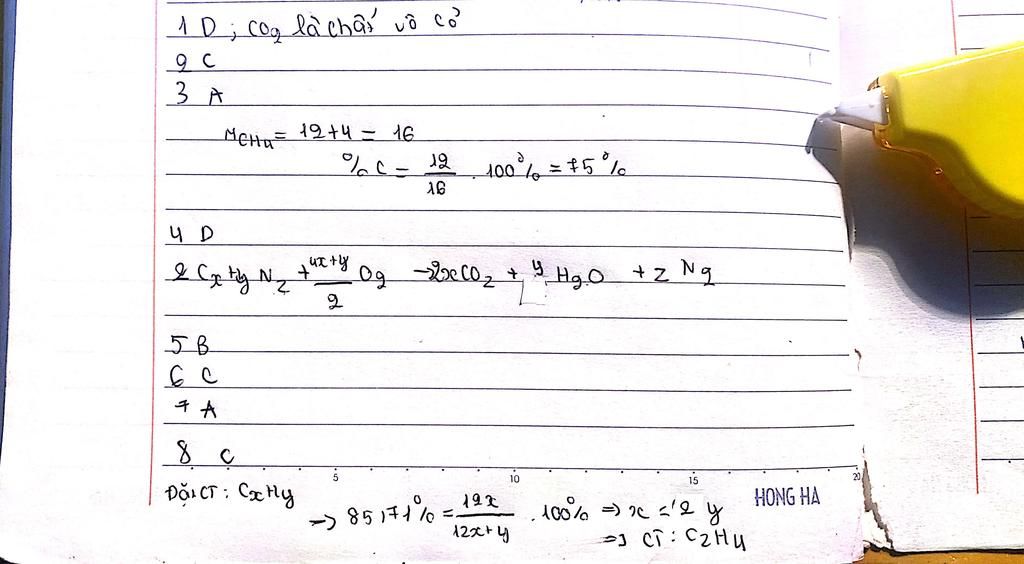 1 D ; CO2 là chất vô cơ
2 C
3 A
MCH4 = 12+4 = 16
% C = 12/16 . 100% = 75%
4 D
2 CxHyNz + 4x+y/2 O2 → 2xCO2 + y H2O + z N2
5 B
6 C
7 A
8 C
5 10 15 20
Đặt CT : CxHy
HONG HA
→ 85,71% = 12x/12x+y . 100% ⇒ x = 2 y
⇒ CT : C2H4